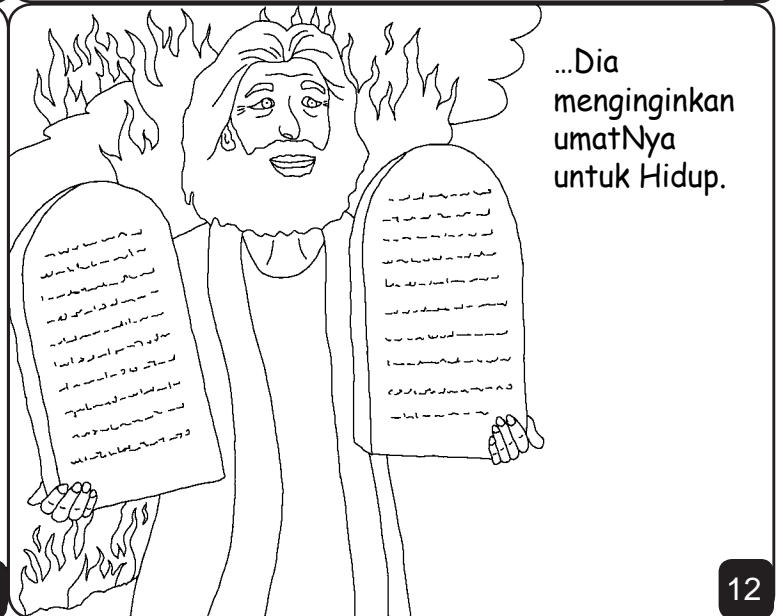 ...Dia
menginginkan
umatNya
untuk Hidup.
12